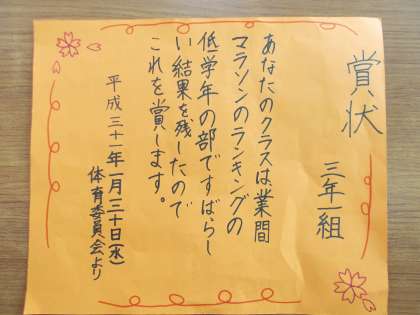 賞状
三年一組
あなたのクラスは、業間
マラソンのランキングの
低学年の部ですばらし
い結果を残したので
これを賞します。
平成三十一年一月三十日(水)
体育委員会より